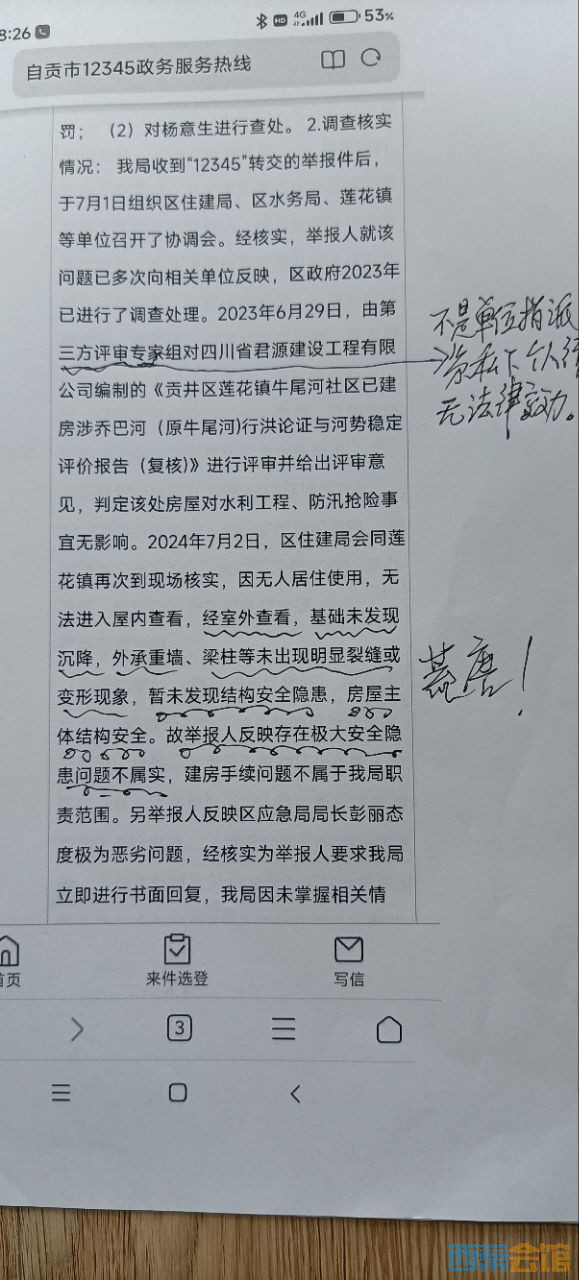 8:26
HD
4G
53%
自贡市12345政务服务热线
罚；（2）对杨意生进行查处。 2.调查核实
情况： 我局收到“12345”转交的举报件后，
于7月1日组织区住建局、区水务局、莲花镇
等单位召开了协调会。经核实，举报人就该
问题已多次向相关单位反映，区政府2023年
已进行了调查处理。2023年6月29日，由第
三方评审专家组对四川省君源建设工程有限
公司编制的《贡井区莲花镇牛尾河社区已建
房涉乔巴河（原牛尾河)行洪论证与河势稳定
评价报告（复核)》进行评审并给出评审意
见，判定该处房屋对水利工程、防汛抢险事
宜无影响。2024年7月2日，区住建局会同莲
花镇再次到现场核实，因无人居住使用，无
法进入屋内查看，经室外查看，基础未发现
沉降，外承重墙、梁柱等未出现明显裂缝或
变形现象，暂未发现结构安全隐患，房屋主
体结构安全。故举报人反映存在极大安全隐
患问题不属实，建房手续问题不属于我局职
责范围。另举报人反映区应急局局长彭丽态
度极为恶劣问题，经核实为举报人要求我局
立即进行书面回复，我局因未掌握相关情
不是单位指派
私下个人
无法律效力。
荒唐！
首页
来件选登
写信
3
西秦会馆